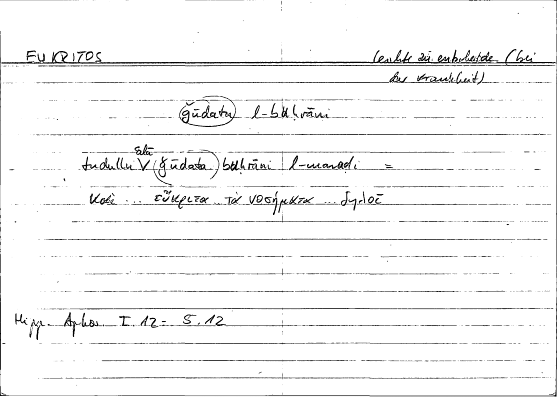 EUKRITOS leicht zu entscheiden (bei
der Krankheit)
ǧūdatu l-buḥrāni
ʿalā
tadullu V (ǧūdata) buḥrāni l-maraḍi =
καὶ ... εὔκριτα ... τὰ νοσήματα ... δηλοῖ
Hipp. Aphor. I. 12 = 5. 12